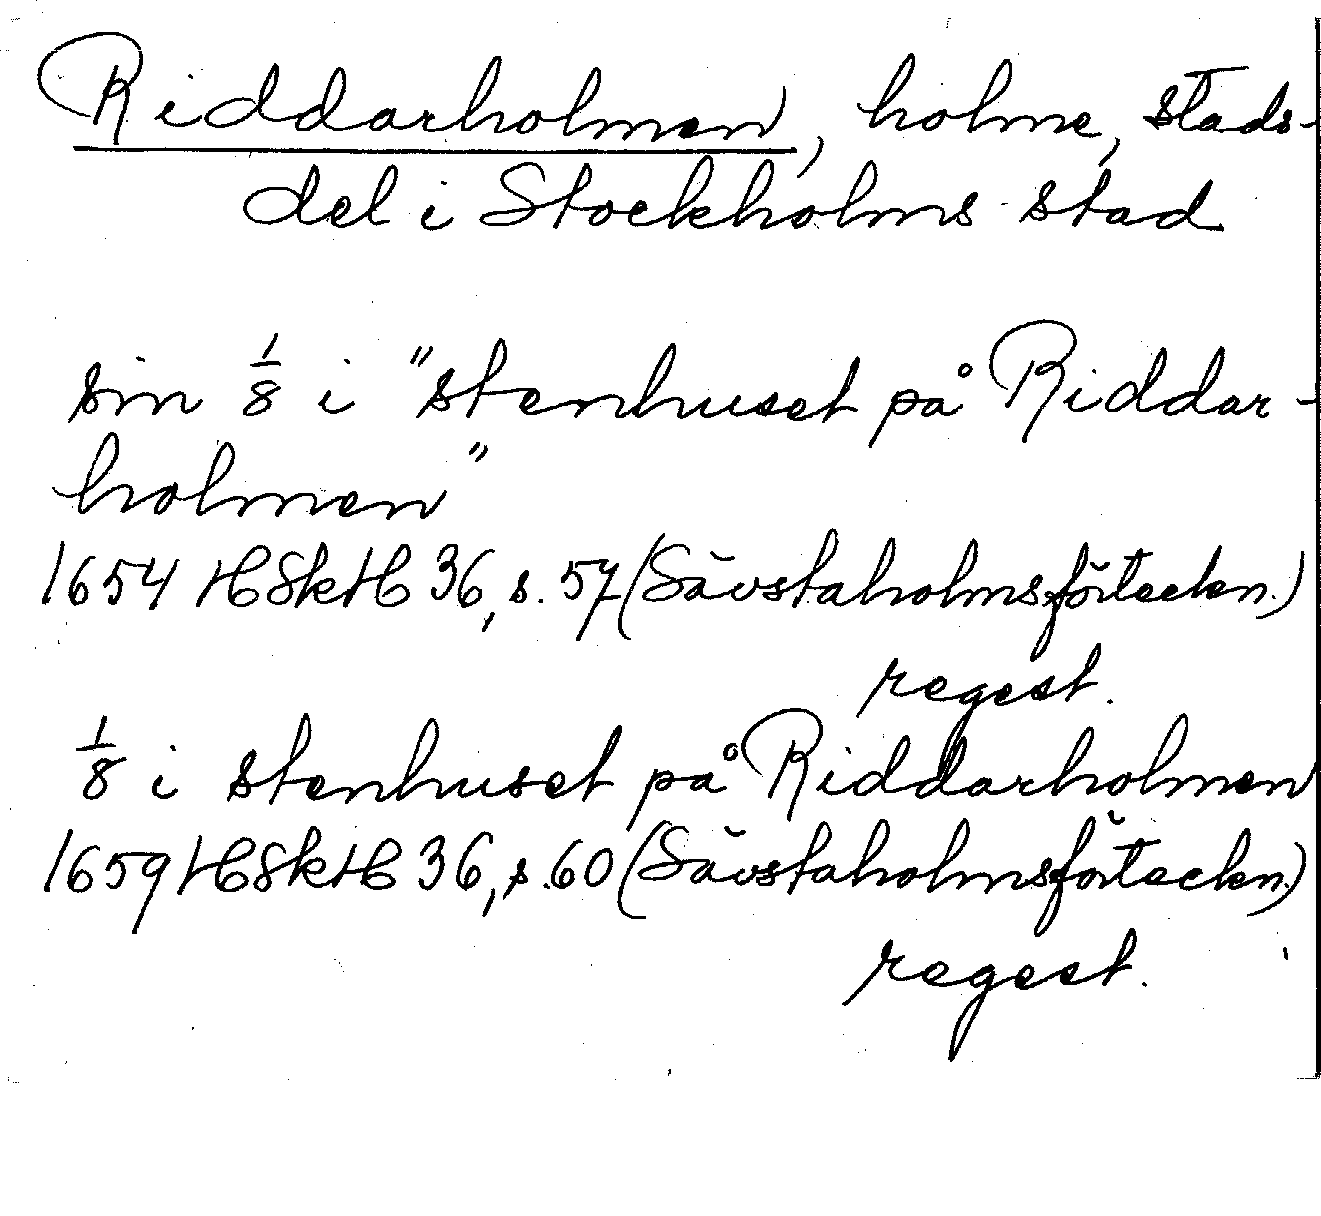 Riddarholmen, holme, stads-
del i Stockholms stad
sin 1/8 i "stenhuset på Riddar-
holmen"
1654 HSkH 36, s. 57 (Sävstaholmsförteckn.)
regest.
1/8 i stenhuset på Riddarholmen
1659 HSkH 36, s. 60 (Sävstaholmsförteckn.)
regest.